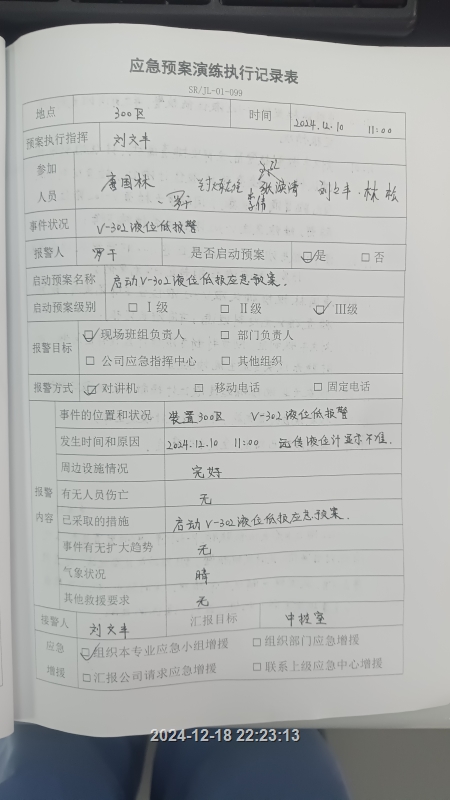 应急预案演练执行记录表
SR/JL-01-099
地点 300区 时间 2024.12.10 11:00
预案执行指挥 刘文丰
参加人员 唐国林 罗干 张滨清 李倩 刘文丰 林松
事件状况 V-302液位低报警
报警人 罗干 是否启动预案 ☑是 □否
启动预案名称 启动V-302液位低报应急预案.
启动预案级别 □ Ⅰ级 □ Ⅱ级 ☑ Ⅲ级
报警目标 ☑现场班组负责人 □ 部门负责人
□ 公司应急指挥中心 □ 其他组织
报警方式 ☑对讲机 □ 移动电话 □ 固定电话
报警内容
事件的位置和状况 装置300区 V-302液位低报警
发生时间和原因 2024.12.10 11:00 远传液位计显示不准.
周边设施情况 完好
有无人员伤亡 无
已采取的措施 启动V-302液位低报应急预案.
事件有无扩大趋势 无
气象状况 晴
其他救援要求 无
接警人 刘文丰 汇报目标 中控室
应急增援 ☑组织本专业应急小组增援 □组织部门应急增援
□汇报公司请求应急增援 □联系上级应急中心增援
2024-12-18 22:23:13